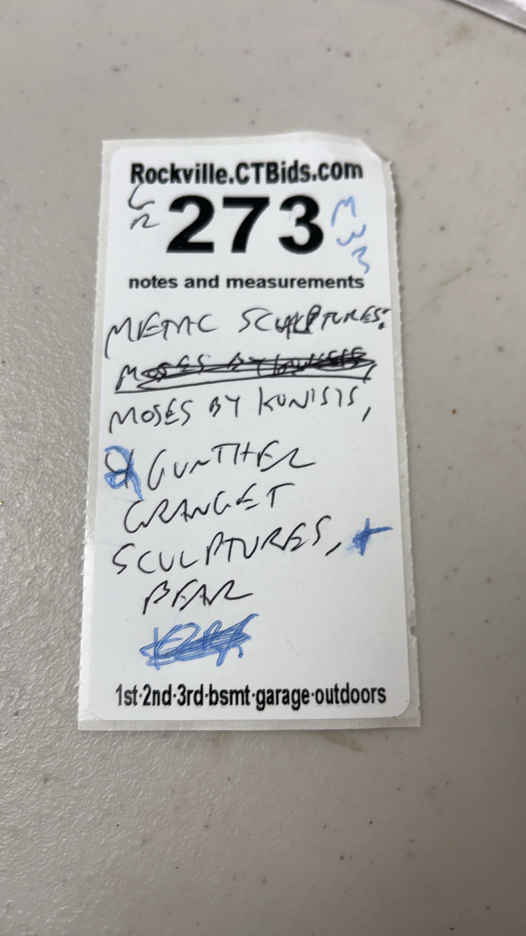 Rockville.CTBids.com
273
notes and measurements
METAL SCULPTURES:
MOSES BY KUNISTS,
GUNTHER
GRANGET
SCULPTURES, +
BEAR
1st·2nd·3rd·bsmt·garage·outdoors